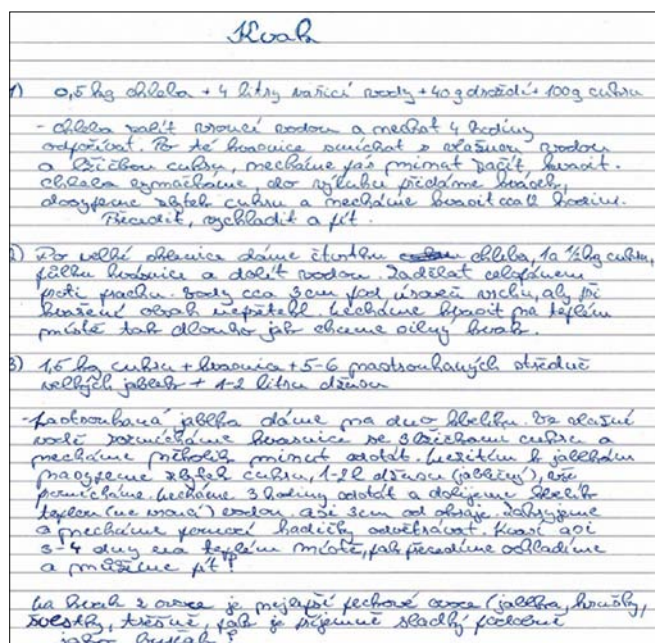 Kvak
1) 0,5 kg chleba + 4 litry vařicí vody + 40g droždí + 100g cukru
- chleba zalít vroucí vodou a nechat 4 hodiny
odpočívat. Po té kvasnice smíchat s vlažnou vodou
a lžičkou cukru, necháme pár minut začít kvasit.
chleba vymačkáme, do výluhu přidáme kvásek,
dosypeme zbytek cukru a necháme kvasit cca 12 hodin.
Přecedit, vychladit a pít.
2) Do velké sklenice dáme čtvrtku chleba, 1a 1/2 kg cukru,
půlku kvasnice a dolít vodou. Zadělat celofánem
proti prachu. Vody cca 3cm pod úroveň vrchu, aby při
kvašení obsah nepřetekl. Necháme kvasit na teplém
místě tak dlouho jak chceme silný kvak.
3) 1,5 kg cukru + kvasnice + 5-6 nastrouhaných středně
velkých jablek + 1-2 litru džusu
- nastrouhaná jablka dáme na dno kbelíku. Ve vlažné
vodě rozmícháme kvasnice se 3 lžičkami cukru a
necháme několik minut odstát. Mezitím k jablkám
nasypeme zbytek cukru, 1-2l džusu (jablečný), vše
pomícháme. Necháme 3 hodiny odstát a dolijeme kbelík
teplou (ne vroucí) vodou asi 3cm od okraje. Zakryjeme
a necháme pomocí hadičky odvětrávat. Kvasí asi
3-4 dny na teplém místě, pak přecedíme ochladíme
a můžeme pít!
Na kvak z ovoce je nejlepší peckové ovoce (jablka, hrušky,
švestky, třešně, pak je příjemně sladký podobně
jako burčák!